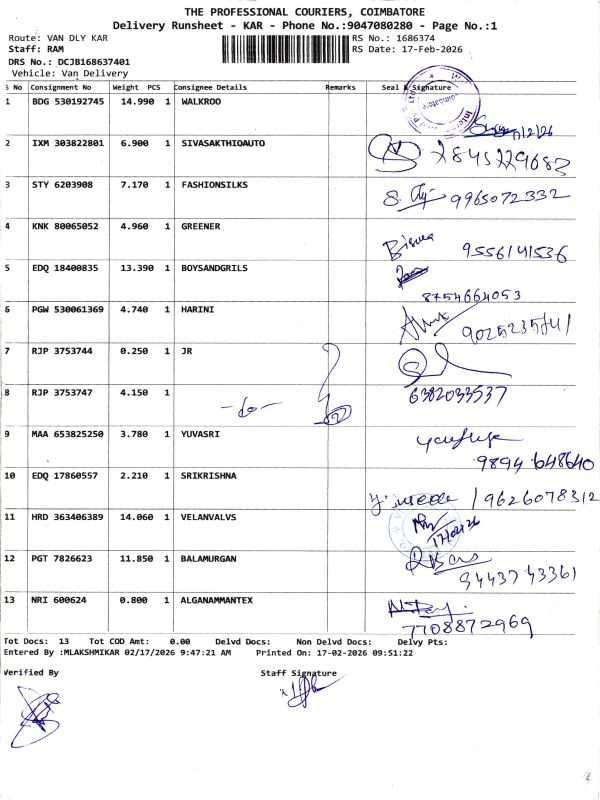 THE PROFESSIONAL COURIERS, COIMBATORE
Delivery Runsheet - KAR - Phone No.:9047080280 - Page No.:1
Route: VAN DLY KAR RS No.: 1686374
Staff: RAM RS Date: 17-Feb-2026
DRS No.: DCJB168637401
Vehicle: Van Delivery
S No Consignment No Weight PCS Consignee Details Remarks Seal & Signature
1 BDG 530192745 14.990 1 WALKROO
2 IXM 303822801 6.900 1 SIVASAKTHIOAUTO
7845229683
3 STY 6203908 7.170 1 FASHIONSILKS
9965072332
4 KNK 80065052 4.960 1 GREENER
Biswa 9556141536
5 EDQ 18400835 13.390 1 BOYSANDGRILS
8754664053
6 PGW 530061369 4.740 1 HARINI
7 RJP 3753744 0.250 1 JR
8 RJP 3753747 4.150 1 -do-
6382033537
9 MAA 653825250 3.780 1 YUVASRI
9894 648640
10 EDQ 17860557 2.210 1 SRIKRISHNA
9626078312
11 HRD 363406389 14.060 1 VELANVALVS
12 PGT 7826623 11.850 1 BALAMURGAN
94437 43361
13 NRI 600624 0.800 1 ALGANAMMANTEX
7708872969
Tot Docs: 13 Tot COD Amt: 0.00 Delvd Docs: Non Delvd Docs: Delvy Pts:
Entered By :MLAKSHMIKAR 02/17/2026 9:47:21 AM Printed On: 17-02-2026 09:51:22
Verified By Staff Signature